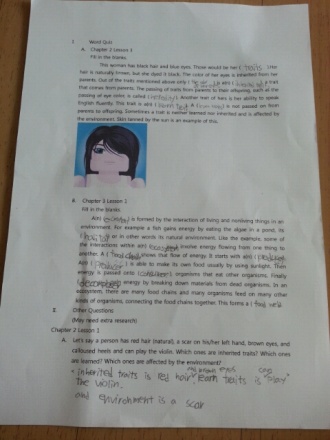 1. Word Quiz
A. Chapter 2 Lesson 3
Fill in the blanks.
This woman has black hair and blue eyes. Those would be her ( traits Like
hair is naturally brown, but she dyed it black. The color of her eyes is inherited from her
parents. Out of the traits mentioned above only ( is a(n) ( a trait
that comes from parents. The passing of traits from parents to their offspring, such as the
passing of eye color is called ( Another trait of hers is her ability to speak
English fluently. This trait is a(n) ( learn trait A is not passed on from
parents to offspring. Sometimes a trait is neither learned nor inherited and is affected by
the environment. Skin tanned by the sun is an example of this.
B. Chapter 3 Lesson 1
Fill in the blanks
A(n) is formed by the interaction of living and nonliving things in an
environment. For example a fish gains energy by eating the algae in a pond, its
( habitat or in other words its natural environment. Like the example, some of
the interactions within a(n) involve energy flowing from one thing to
another. A ( food chain shows that flow of energy. It starts with a(n) ( producer
A(n) ( producer ) is able to make its own food usually by using sunlight. Then
energy is passed onto ( consumer ) organisms that eat other organisms. Finally
energy by breaking down materials from dead organisms. In an
ecosystem, there are many food chains and many organisms feed on many other
kinds of organisms, connecting the food chains together. This forms a ( food web
2. Other Questions
(May need extra research)
Chapter 2 Lesson 3
A. Let's say a person has red hair (natural), a scar on his/her left hand, brown eyes, and
calloused heels and can play the violin. Which ones are inherited traits? Which ones
are learned? Which ones are affected by the environment?
and brown eyes
inherited traits is red hair learn traits is "play"
the violin.
and environment is a scar